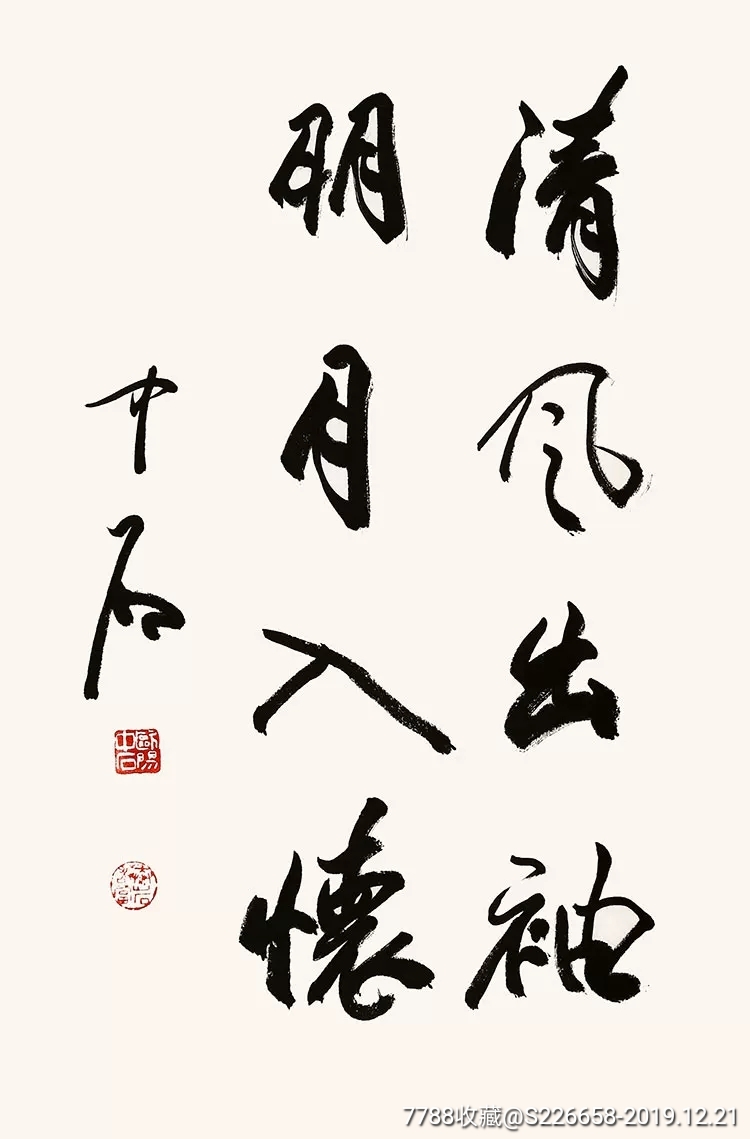 清风出袖
明月入懷
中石
歐陽中石
7788收藏@S226658-2019.12.21